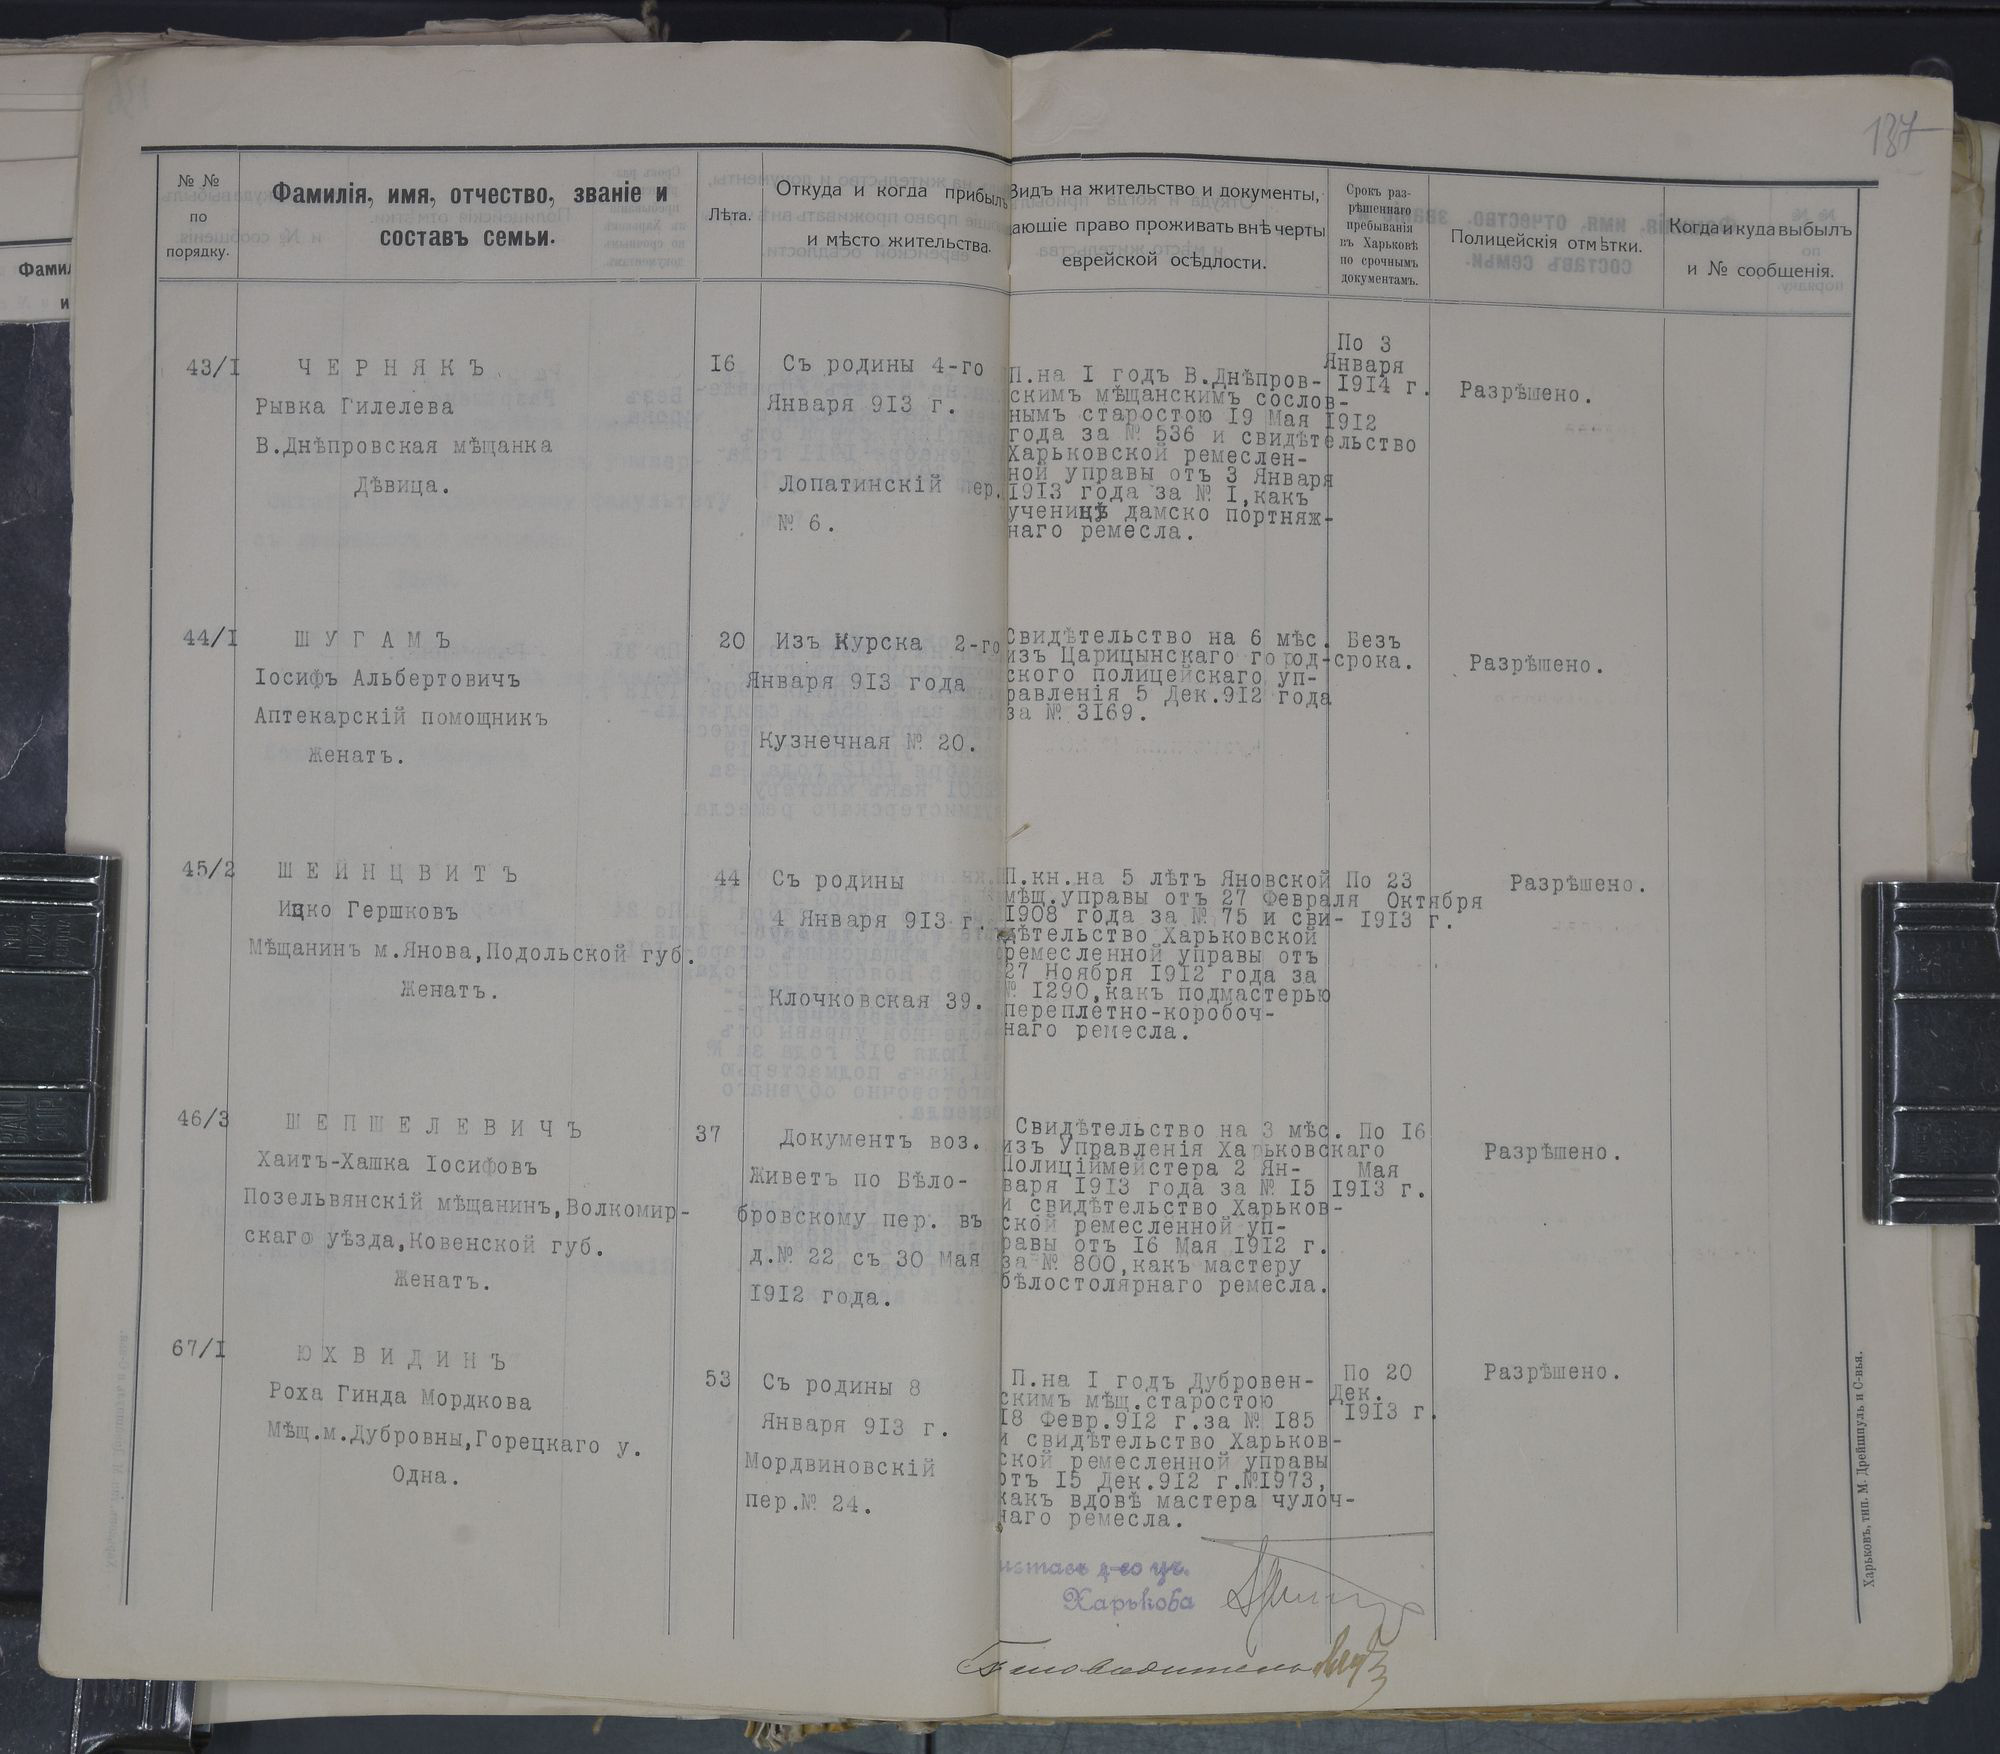 137
№ № по порядку.
Фамилія, имя, отчество, званіе и
составъ семьи.
Лѣта.
Откуда и когда прибылъ
и мѣсто жительства.
Видъ на жительство и документы,
дающіе право проживать внѣ черты
еврейской осѣдлости.
Срокъ раз-
рѣшеннаго
пребыванія
въ Харьковѣ
по срочнымъ
документамъ.
Полицейскія отмѣтки.
Когда и куда выбылъ
и № сообщенія.
43/I
ЧЕРНЯКЪ
Рывка Гилелева
В.Днѣпровская мѣщанка
Дѣвица.
16
Съ родины 4-го
Января 913 г.
Лопатинскій пер.
№ 6.
П.на I годъ В.Днѣпров-
скимъ мѣщанскимъ сослов-
нымъ старостою 19 Мая 1912
года за № 536 и свидѣтельство
Харьковской ремеслен-
ной управы отъ 3 Января
1913 года за № I,какъ
ученицѣ дамско портняж-
наго ремесла.
По 3
Января
1914 г.
Разрѣшено.
44/I
ШУГАМЪ
Іосифъ Альбертовичъ
Аптекарскій помощникъ
Женатъ.
20
Изъ Курска 2-го
Января 913 года
Кузнечная № 20.
Свидѣтельство на 6 мѣс.
изъ Царицынскаго город-
ского полицейскаго уп-
равленія 5 Дек.912 года
за № 3169.
Безъ
срока.
Разрѣшено.
45/2
ШЕЙНЦВИТЪ
Ицко Гершковъ
Мѣщанинъ м.Янова,Подольской губ.
Женатъ.
44
Съ родины
4 Января 913 г.
Клочковская 39.
П.кн.на 5 лѣтъ Яновской
мѣщ.управы отъ 27 Февраля
1908 года за № 75 и сви-
дѣтельство Харьковской
ремесленной управы отъ
27 Ноября 1912 года за
№ 1290,какъ подмастерью
переплетно-коробоч-
наго ремесла.
По 23
Октября
1913 г.
Разрѣшено.
46/3
ШЕПШЕЛЕВИЧЪ
Хаитъ-Хашка Іосифовъ
Позельвянскій мѣщанинъ,Волкомир-
скаго уѣзда,Ковенской губ.
Женатъ.
37
Документъ воз.
Живетъ по Бѣло-
бровскому пер. въ
д.№ 22 съ 30 Мая
1912 года.
Свидѣтельство на 3 мѣс.
изъ Управленія Харьковскаго
Полиціймейстера 2 Ян-
варя 1913 года за № 15
и свидѣтельство Харьков-
ской ремесленной уп-
равы отъ 16 Мая 1912 г.
за № 800,какъ мастеру
бѣлостолярнаго ремесла.
По 16
Мая
1913 г.
Разрѣшено.
67/I
ЮХВИДИНЪ
Роха Гинда Мордкова
Мѣщ.м.Дубровны,Горецкаго у.
Одна.
53
Съ родины 8
Января 913 г.
Мордвиновскій
пер.№ 24.
П.на I годъ Дубровен-
скимъ мѣщ.старостою
18 Февр.912 г.за № 185
и свидѣтельство Харьков-
ской ремесленной управы
отъ 15 Дек.912 г.№1973,
какъ вдовѣ мастера чулоч-
наго ремесла.
По 20
Дек.
1913 г.
Разрѣшено.
4-го уч.
Харькова
Харьковъ, тип. М. Дрейшпуль и С-вья.